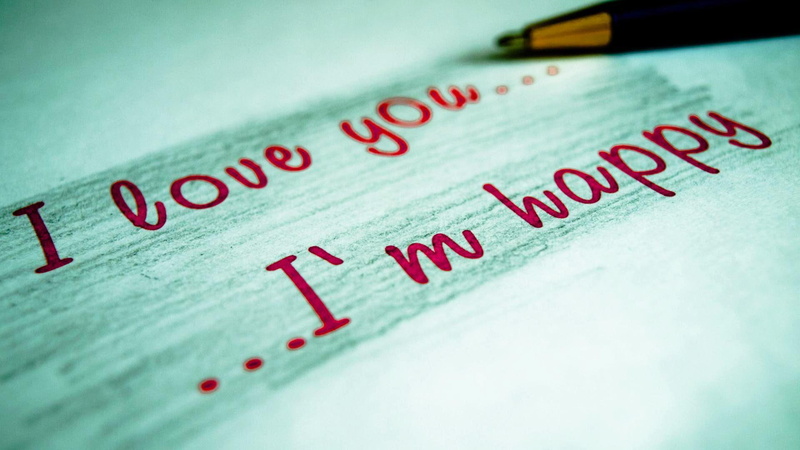 I love you...
...I`m happy